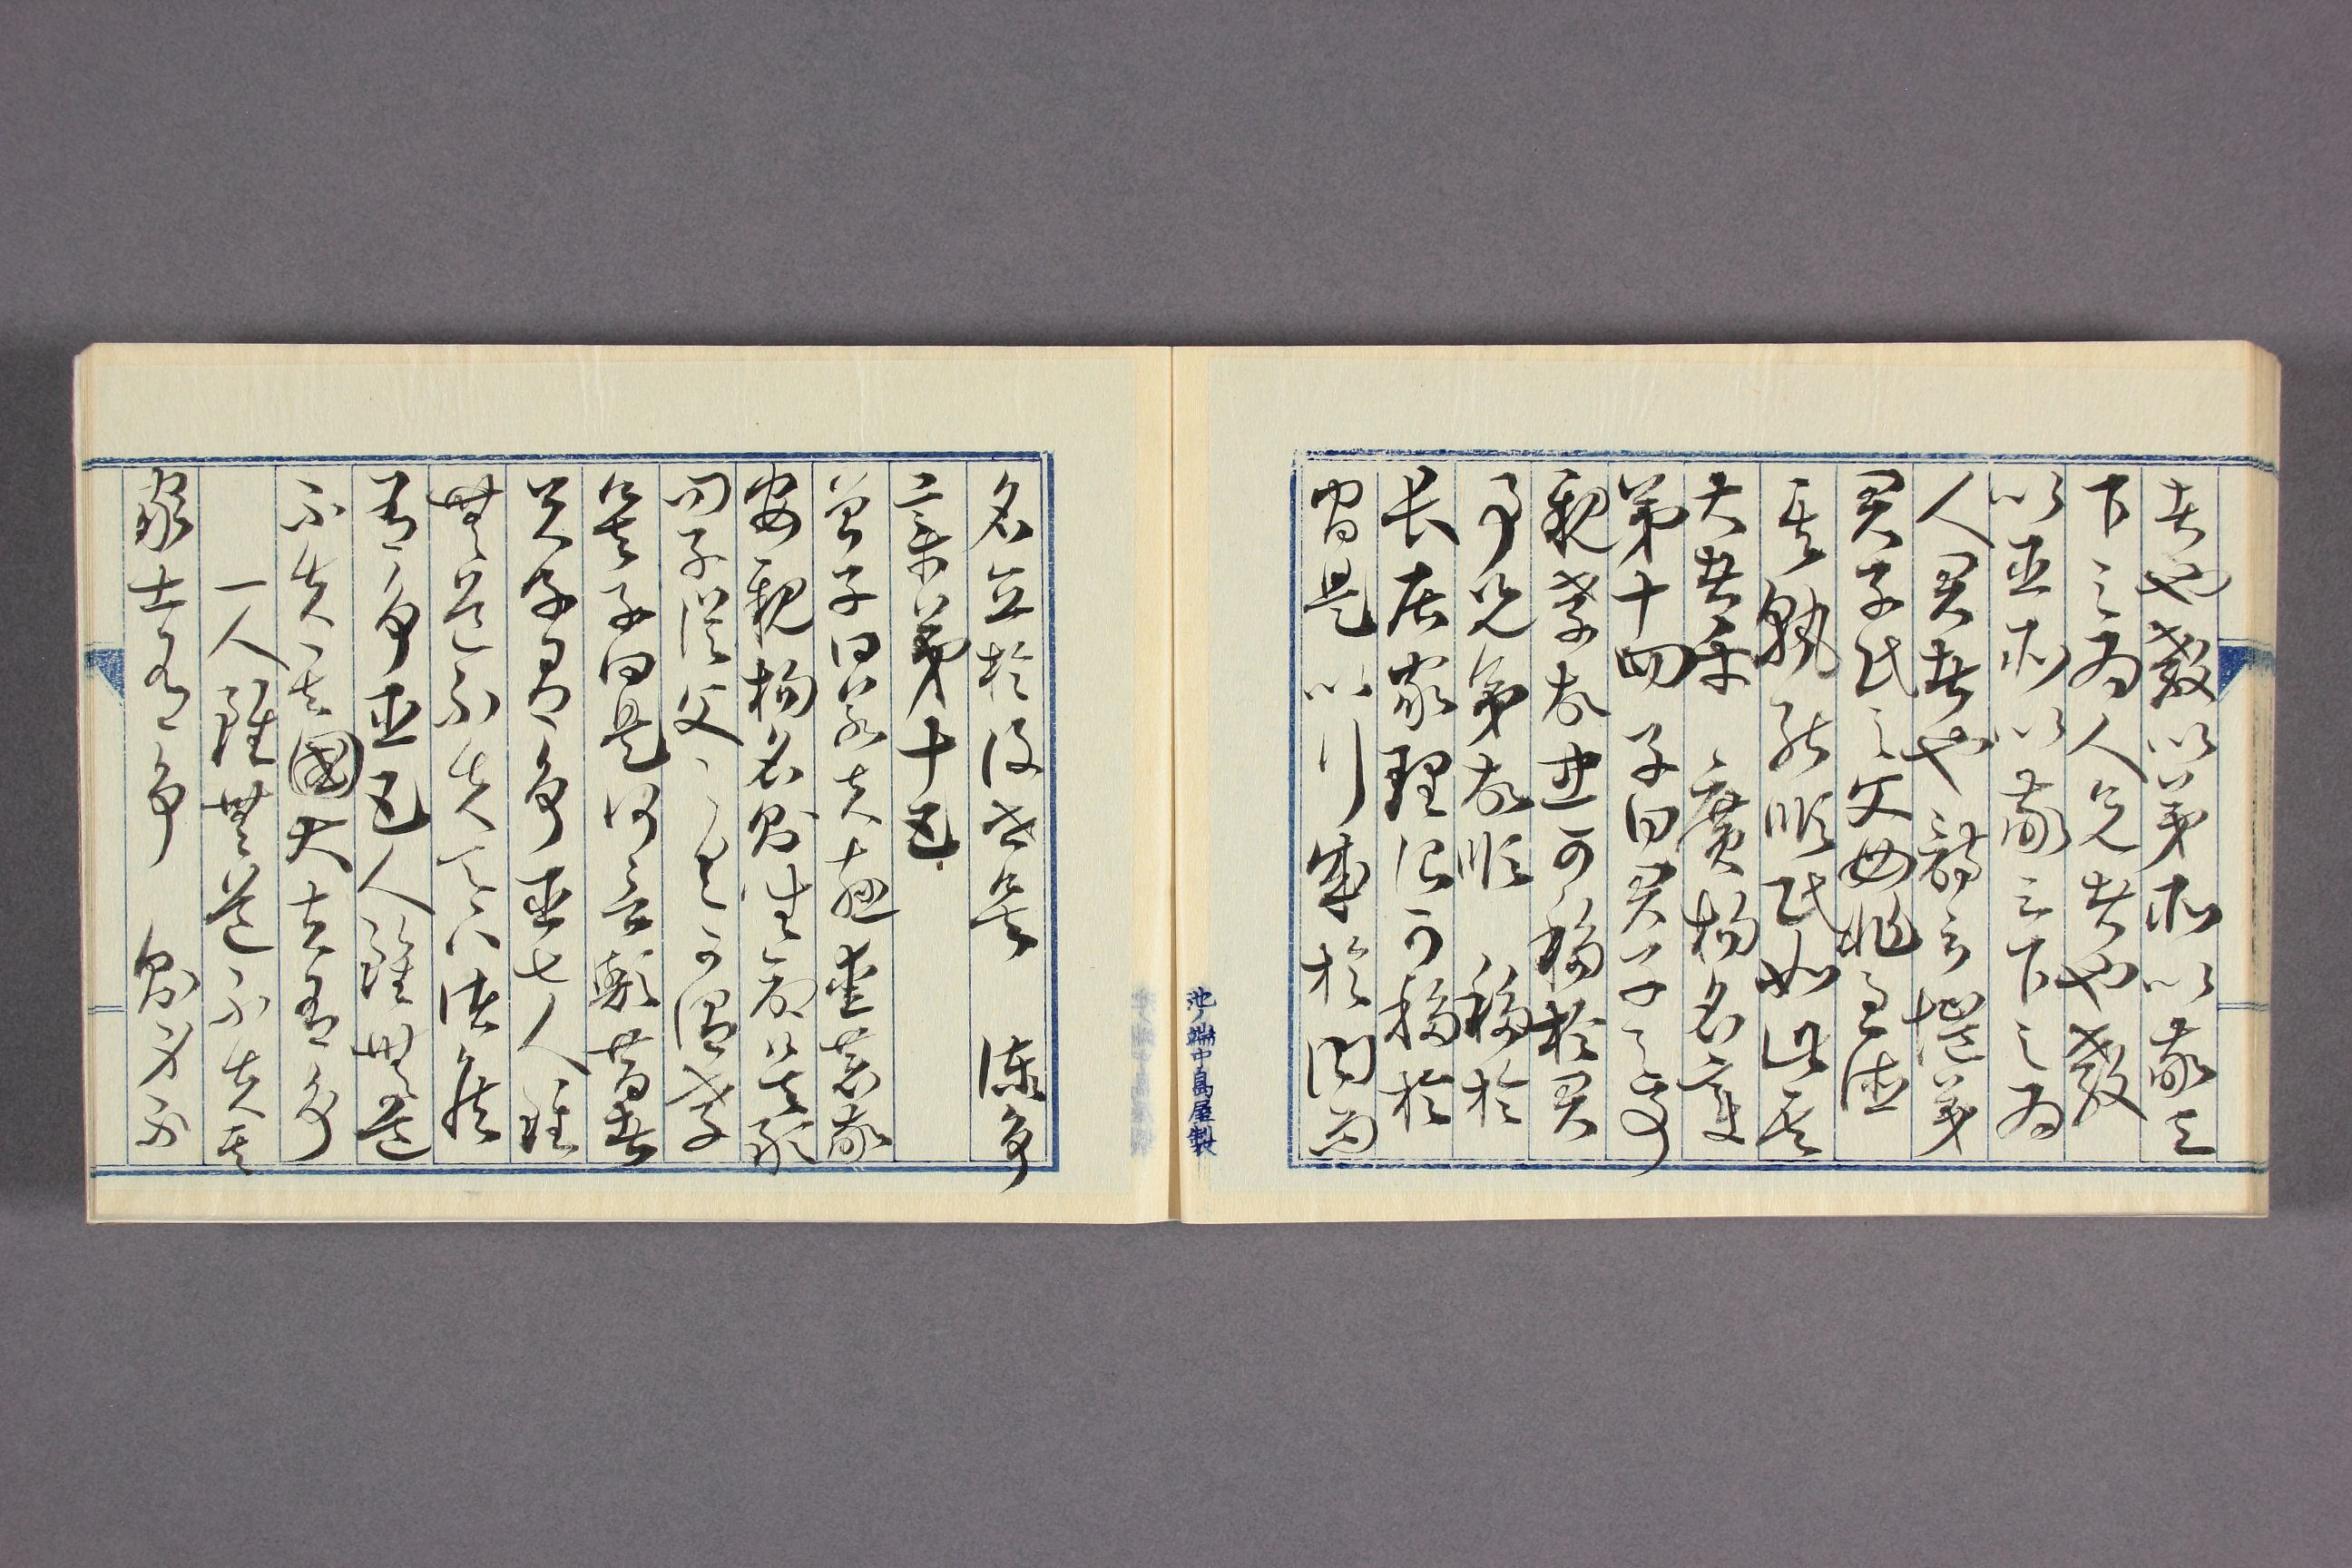 者也教以弟所以敬天
下之爲人兄者也教
以臣所以敬天下之爲
人君者也詩云愷悌
君子民之父母非至德
其孰能順民如此其
大者乎　廣揚名章
第十四　子曰君子之事
親孝故忠可移於君
事兄弟故順　移於
長居家理治可移於
官是以行成於内而
名立於後世矣　諫爭
章第十五
曽子曰若夫慈愛恭敬
安親揚名則聞命矣敢
問子従父之令可謂孝
矣子曰是何言歟昔者
天子有爭臣七人雖
無道不失天下諸侯
有爭臣五人雖無道
不失其國大夫有爭
一人雖無道不失其
家士有爭　則身不
池ノ端中島屋製